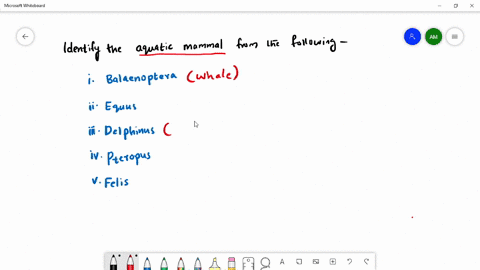 Microsoft Whiteboard
AM
Identify the aquatic mammal from the following –
i. Balaenoptera (whale)
ii. Equus
iii. Delphinus (
iv. Pteropus
v. Felis